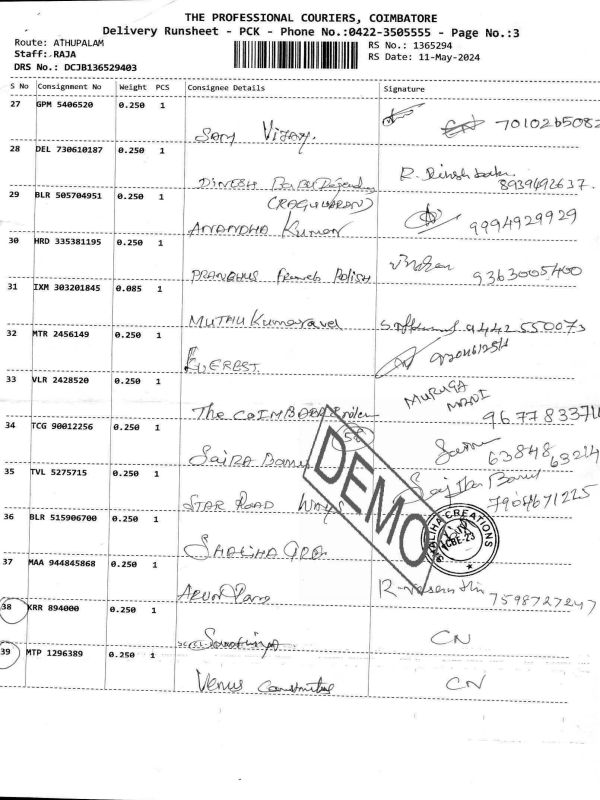 THE PROFESSIONAL COURIERS, COIMBATORE
Delivery Runsheet - PCK - Phone No.:0422-3505555 - Page No.:3
Route: ATHUPALAM
Staff: RAJA
DRS No.: DCJB136529403
RS No.: 1365294
RS Date: 11-May-2024
S No Consignment No Weight PCS Consignee Details Signature
27 GPM 5406520 0.250 1
Sam Vijay. 7010265082
28 DEL 730610187 0.250 1
DINESH R. 8939492637.
(RAGUVARAN)
29 BLR 505704951 0.250 1
ANANDHA Kumar 9994929929
30 HRD 335381195 0.250 1
PRANBHUS French Polish 9363005400
31 IXM 303201845 0.085 1
MUTHU Kumaravel 9442550073
32 MTR 2456149 0.250 1
EVEREST.
33 VLR 2428520 0.250 1
The COIMBATORE MURUGA
34 TCG 90012256 0.250 1
58
SaiRA Banu 63848 63214
35 TVL 5275715 0.250 1
STAR ROAD WAYS 7904671225
36 BLR 515906700 0.250 1
DEMO
CREATIONS
CBE-23
37 MAA 944845868 0.250 1
ARUN 7598727247
38 KRR 894000 0.250 1
CN
39 MTP 1296389 0.250 1
Venus CN